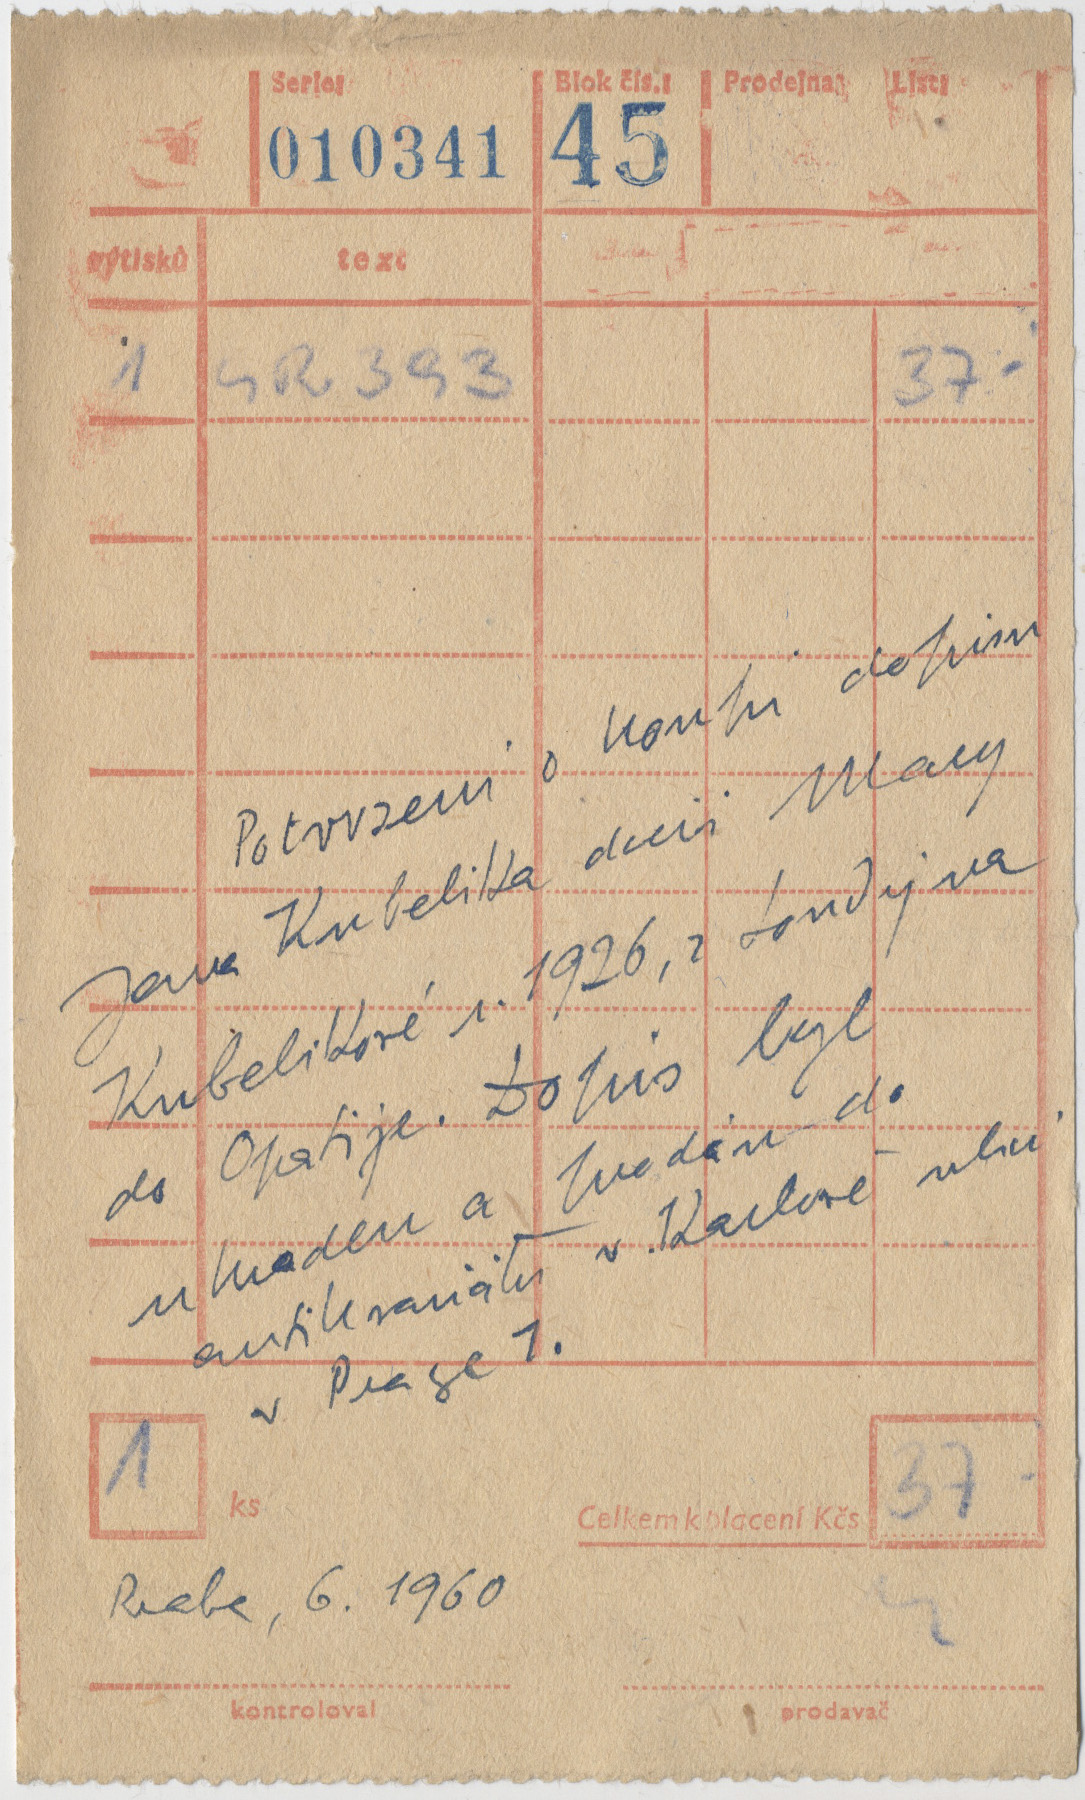 Serie: Blok čís.: Prodejna: List:
010341 45
výtisků text
1 GR 393 37.-
Potvrzení o koupi dopisu
Jana Kubelíka dceři Mary
Kubelíkové r. 1926, z Londýna
do Opatije. Dopis byl
ukraden a prodán do
antikvariátu v Karlově ulici
v Praze 1.
1 ks Celkem k placení Kčs 37.-
Praha, 6. 1960
kontroloval prodavač